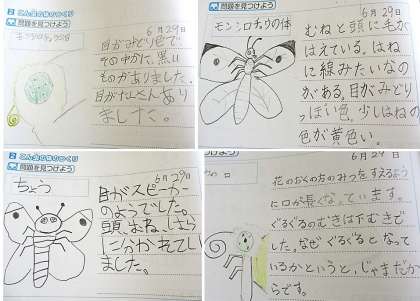 2 こん虫の体のつくり
問題を見つけよう
6月29日
目がみどり色で
その中かに、黒い
ものがありました。
目がたくさんあり
ました。
6月29日
問題を見つけよう
モンシロチョウの体
むねと頭に毛が
はえている。はね
に線みたいなの
がある。目がみどり
っぽい色。少しはねの
色が黄色い。
2 こん虫の体のつくり
問題を見つけよう
6月29日
ちょう
目がスピーカー
のようでした。
頭、むね、はら
に分かれてい
ました。
6月29日
花のおくの方のみつをすえるよう
に口が長くなっています。
ぐるぐるのむきは下むきで
した。なぜぐるぐるとなって
いるかというと、じゃまだか
らです。